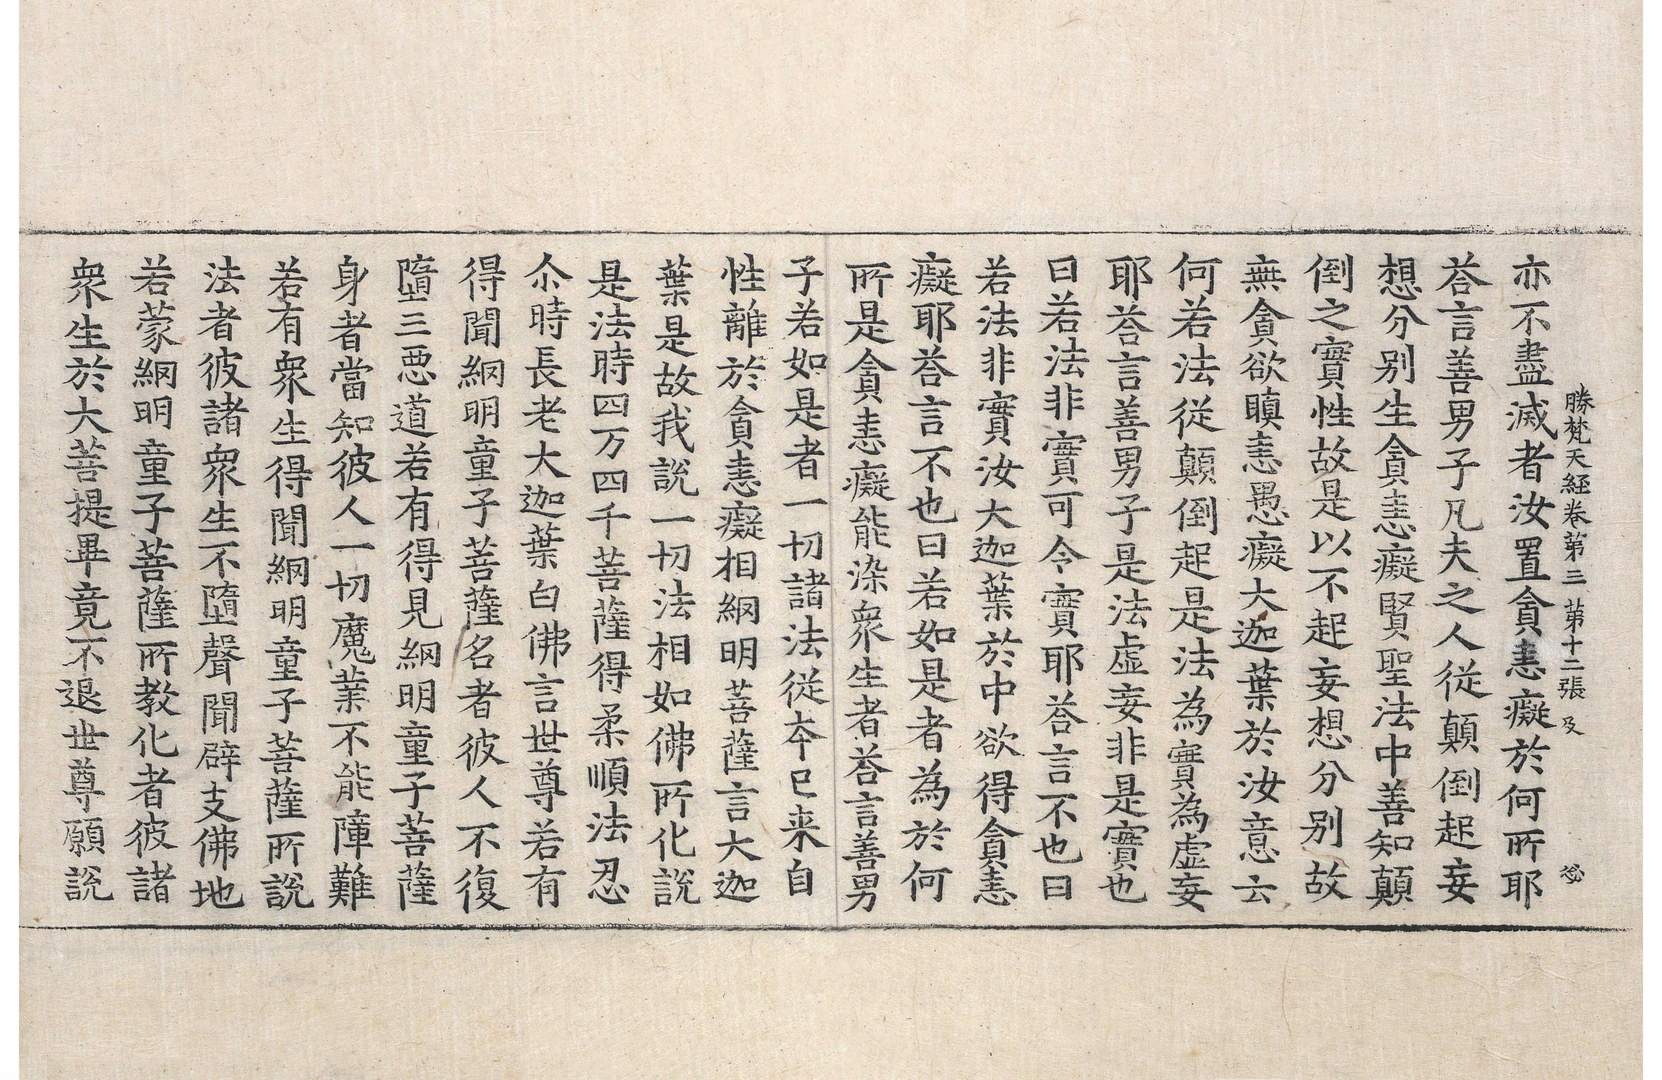 勝梵天經卷第三 第十二張 及
亦不盡滅者汝置貪恚癡於何所耶
荅言善男子凡夫之人從顛倒起妄
想分别生貪恚癡賢聖法中善知顛
倒之實性故是以不起妄想分别故
無貪欲瞋恚愚癡大迦葉於汝意云
何若法從顛倒起是法為實為虛妄
耶荅言善男子是法虛妄非是實也
曰若法非實可令實耶荅言不也曰
若法非實汝大迦葉於中欲得貪恚
癡耶荅言不也曰若如是者為於何
所是貪恚癡能染衆生者荅言善男
子若如是者一切諸法從夲已来自
性離於貪恚癡相綱明菩薩言大迦
葉是故我說一切法相如佛所化說
是法時四万四千菩薩得柔順法忍
尒時長老大迦葉白佛言世尊若有
得聞網明童子菩薩名者彼人不復
墮三悪道若有得見網明童子菩薩
身者當知彼人一切魔業不能障難
若有衆生得聞網明童子菩薩所說
法者彼諸衆生不墮聲聞辟支佛地
若蒙網明童子菩薩所教化者彼諸
衆生於大菩提畢竟不退世尊願說